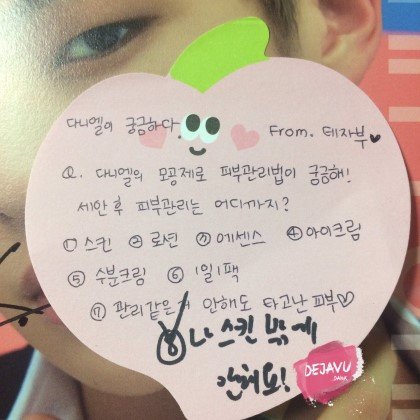 다니엘이 궁금하다
From. 테자부♥
Q. 다니엘의 모공제로 피부관리법이 궁금해!
세안 후 피부관리는 어디까지?
① 스킨 ② 로션 ③ 에센스 ④ 아이크림
⑤ 수분크림 ⑥ 1일1팩
⑦ 관리같은거 안해도 타고난 피부♡
⑧ 나 스킨 밖에
안해요!
DEJAVU